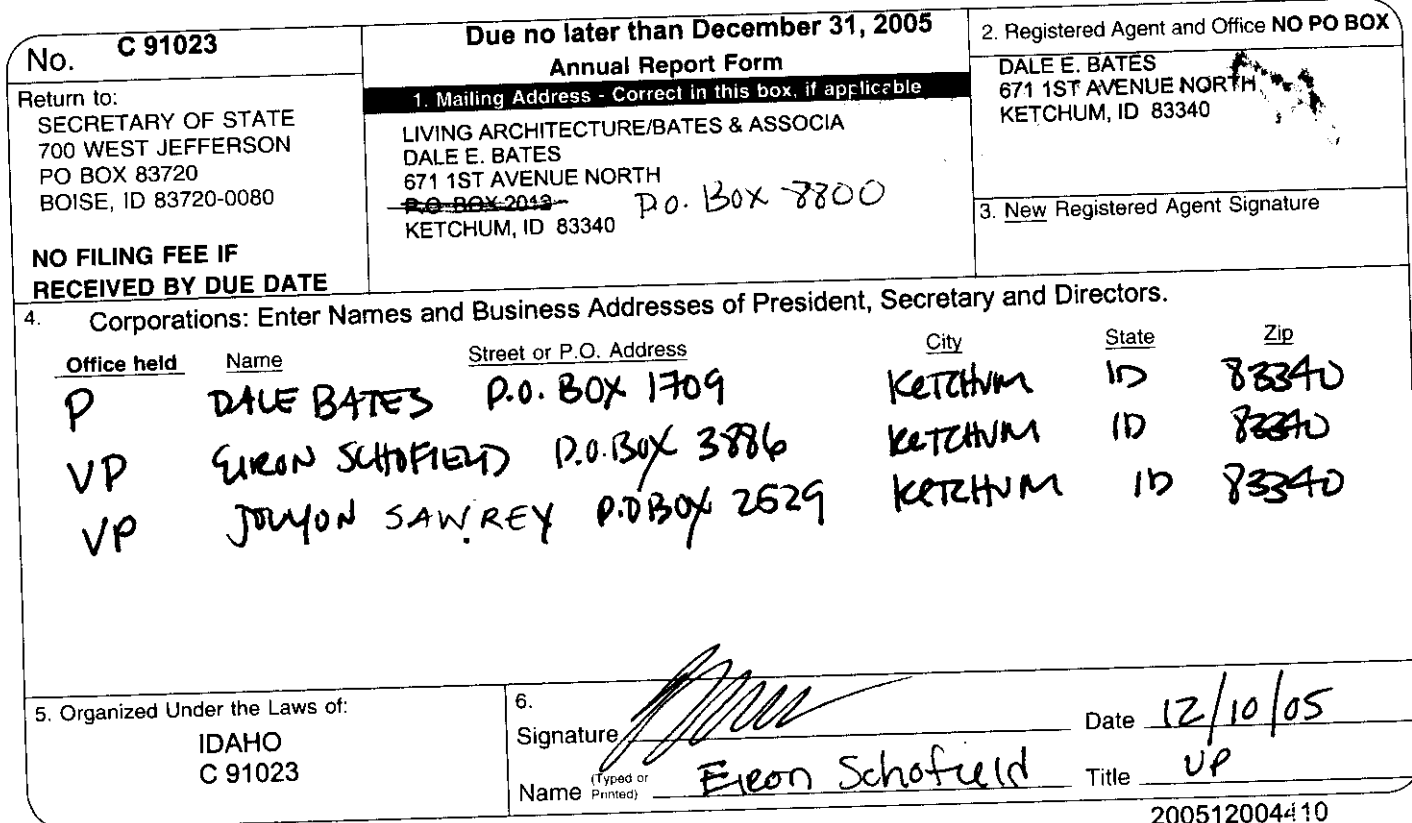 No. C 91023
Due no later than December 31, 2005
Annual Report Form
Return to:
SECRETARY OF STATE
700 WEST JEFFERSON
PO BOX 83720
BOISE, ID 83720-0080
NO FILING FEE IF
RECEIVED BY DUE DATE
1. Mailing Address - Correct in this box, if applicable
LIVING ARCHITECTURE/BATES & ASSOCIA
DALE E. BATES
671 1ST AVENUE NORTH
P.O. BOX 2013 P.O. BOX 8800
KETCHUM, ID 83340
2. Registered Agent and Office NO PO BOX
DALE E. BATES
671 1ST AVENUE NORTH
KETCHUM, ID 83340
3. New Registered Agent Signature
4. Corporations: Enter Names and Business Addresses of President, Secretary and Directors.
Office held Name Street or P.O. Address City State Zip
P DALE BATES P.O. BOX 1709 KETCHUM ID 83340
VP EIRON SCHOFIELD P.O. BOX 3886 KETCHUM ID 83340
VP JOLYON SAWREY P.O BOX 2529 KETCHUM ID 83340
5. Organized Under the Laws of:
IDAHO
C 91023
6.
Signature Date 12/10/05
Name (Typed or Printed) Eiron Schofield Title VP
200512004410